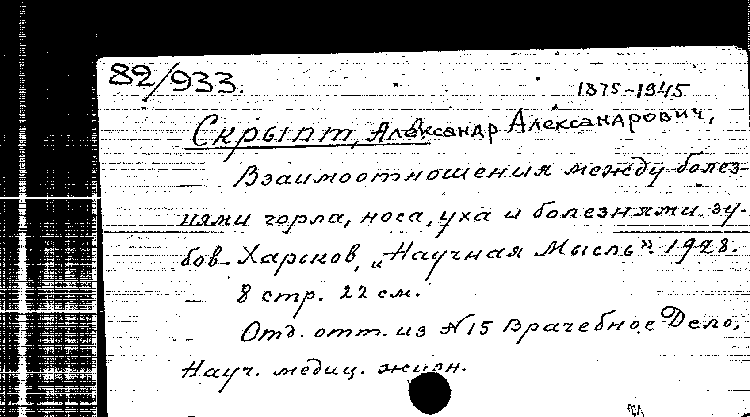 82/933.
1875-1945
Скрыпт, Александр Александрович,
Взаимоотношения между болез-
нями горла, носа, уха и болезнями зу-
бов. Харьков, „Научная Мысль“. 1928.
8 стр. 22 см.
Отд. отт. из №15 Врачебное Дело,
Науч. медиц. жизн.